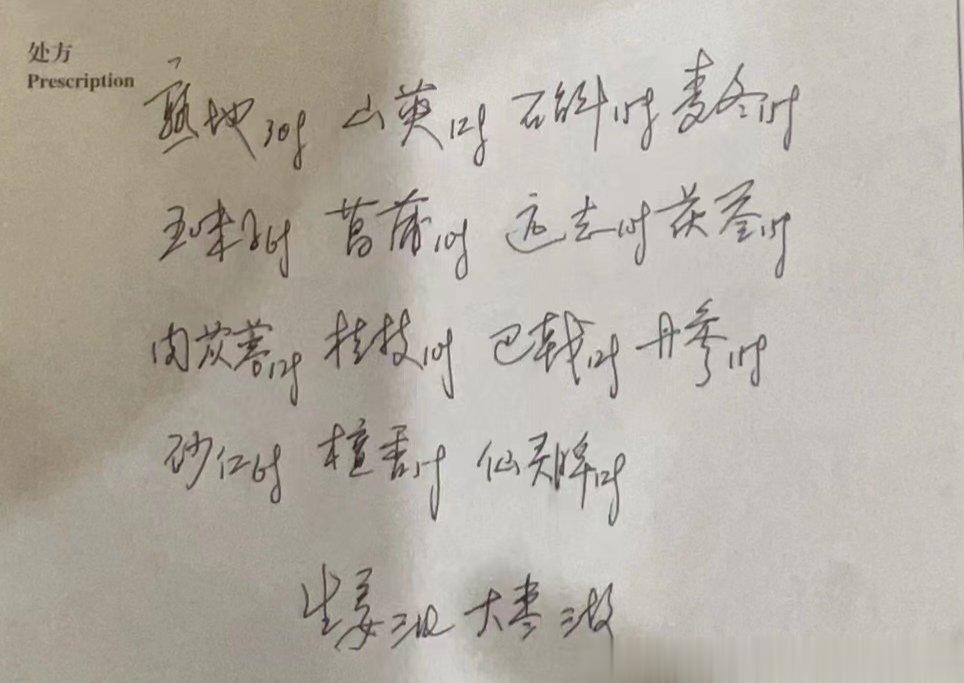 处方
Prescription
熟地30g 山萸12g 石斛15g 麦冬15g
五味子6g 菖蒲10g 远志10g 茯苓15g
肉苁蓉12g 桂枝10g 巴戟12g 丹参15g
砂仁6g 檀香 仙灵脾12g
生姜三 大枣三枚